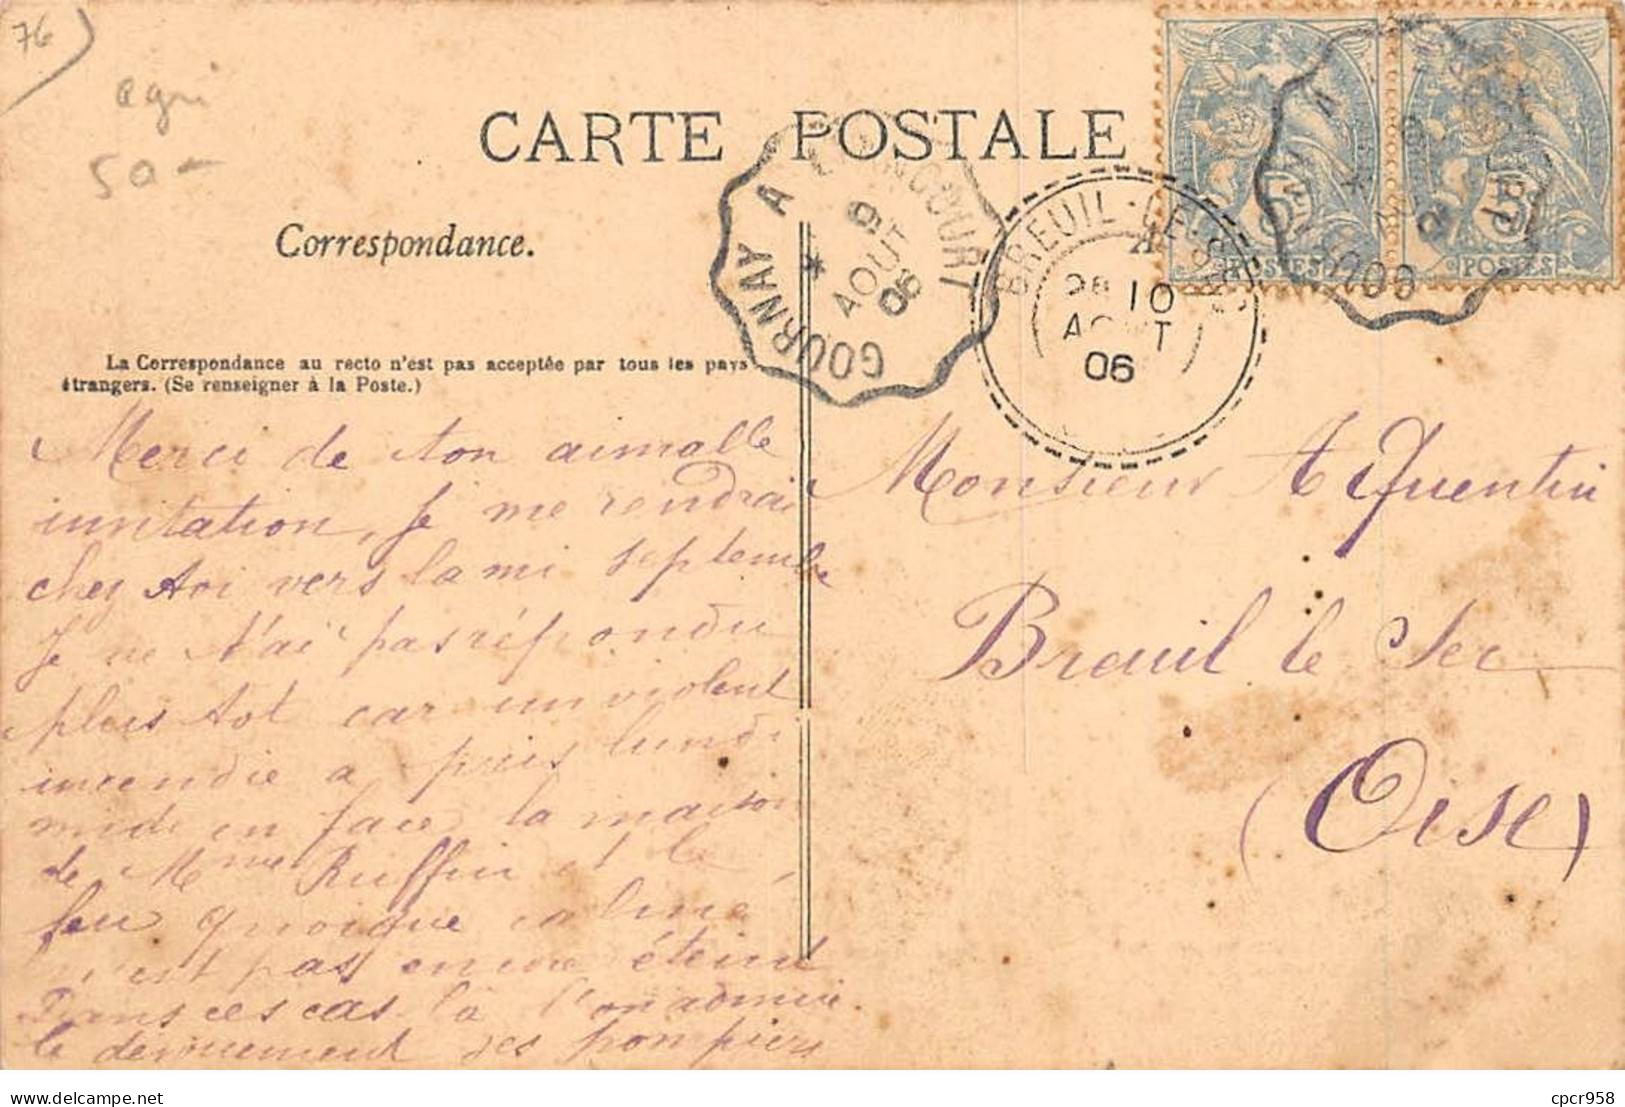 76
agri
50-
CARTE POSTALE
Correspondance.
La Correspondance au recto n'est pas acceptée par tous les pays
étrangers. (Se renseigner à la Poste.)
GOURNAY A
9
AOUT
06
BREUIL-LE-SEC
10
AOUT
06
POSTES
POSTES
Merci de ton aimable
invitation, Je me rendrai
chez toi vers la mi septembre
Je ne t'ai pas répondu
plus tot car un violent
incendie a pris lundi
midi en face la maison
de Mme Ruffin et le
feu quoique calmé
n'est pas encore éteint
Dans ces cas là l'on admire
le devouement des pompiers
Monsieur A Quentin
Breuil le Sec
(Oise)
Delcampe.net
cpcr958